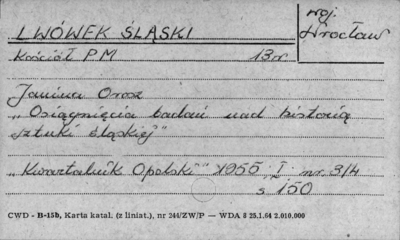 LWÓWEK ŚLĄSKI
woj.
Wrocław
Kościół PM 13 w.
Janina Orosz
„Osiągnięcia badań nad historią
sztuki śląskiej"
„Kwartalnik Opolski" 1955 I nr. 3/4
s 150
CWD - B-15b, Karta katal. (z liniat.), nr 244/ZW/P — WDA 8 25.1.64 2.010.000